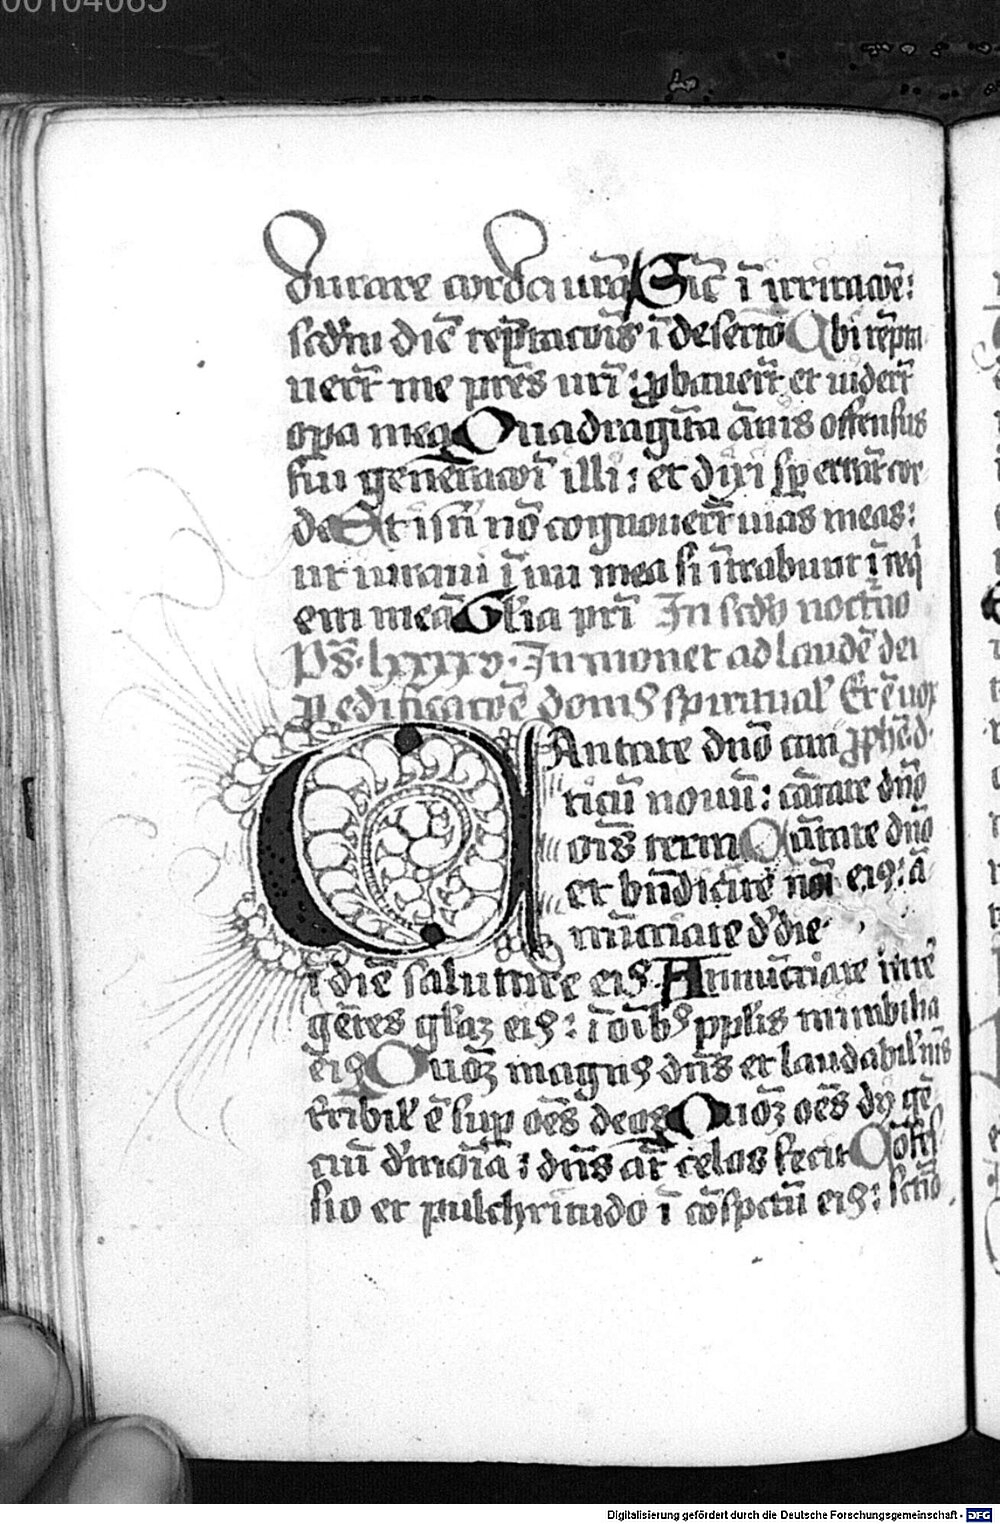 00104065
durare corda vrā Sic̄ ī irritacōe:
scdm diē temptacōis ī deserto Ubi tēpta
uerūt me pr̄es vr̄i: ꝓbauerūt et viderūt
opa mea Quadragīta ānis offensus
fui generacōi illi: et dixi sp̄ errāt cor
de Et isti nō cognouerūt vias meas:
ut iuraui ī ira mea si ītrabunt ī reqͥ
em meā Gl̄ia pr̄i In scdo nocͭno
Ps̄. lxxxxv. Inmonet ad laudē dei
ꝓ edificacōe domꝰ spiritual̄ Et ē vox
Antate dn̄o can ꝓphē d.
ticū nouū: cātate dn̄o
oīs terra Cātate dn̄o
et bn̄dicite noī eiꝰ: ā
nūcciate d' die
ī diē salutare eiꝰ Annūcciate inter̄
gētes gl̄aꝫ eiꝰ: ī oībꝰ ppl̄is mirabilia
eiꝰ Quōꝫ magnꝰ dn̄s et laudabil̄ nīs
tribil̄ ē sup oēs deos Quōꝫ oēs dij gē
ciū d'mōia: dn̄s aūt celos fecit Cōfes
sio et pulchritudo ī cōspctū eiꝰ: sctīō
Digitalisierung gefördert durch die Deutsche Forschungsgemeinschaft - DFG